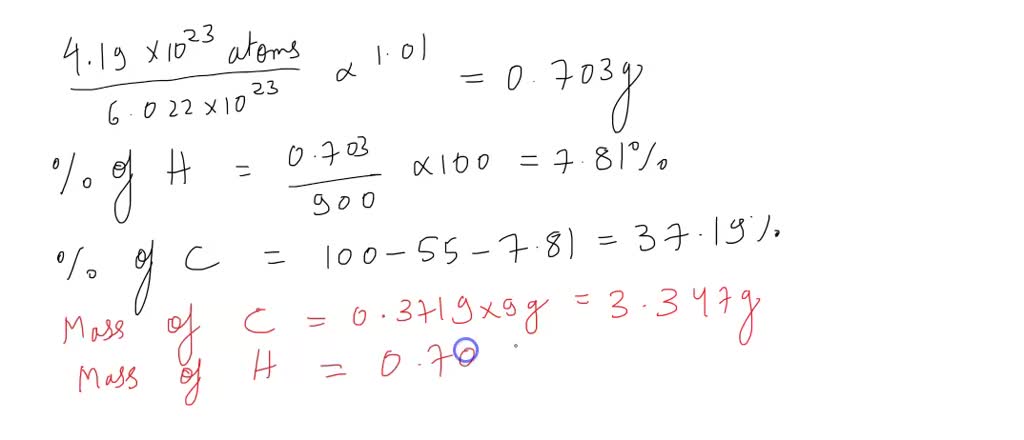 4.19 ×10²³ atoms
6.022×10²³
× 1.01 = 0.703g
% of H = 0.703/900 ×100 = 7.81%
% of C = 100-55-7.81 = 37.19%
Mass of C = 0.3719×9g = 3.347g
Mass of H = 0.70